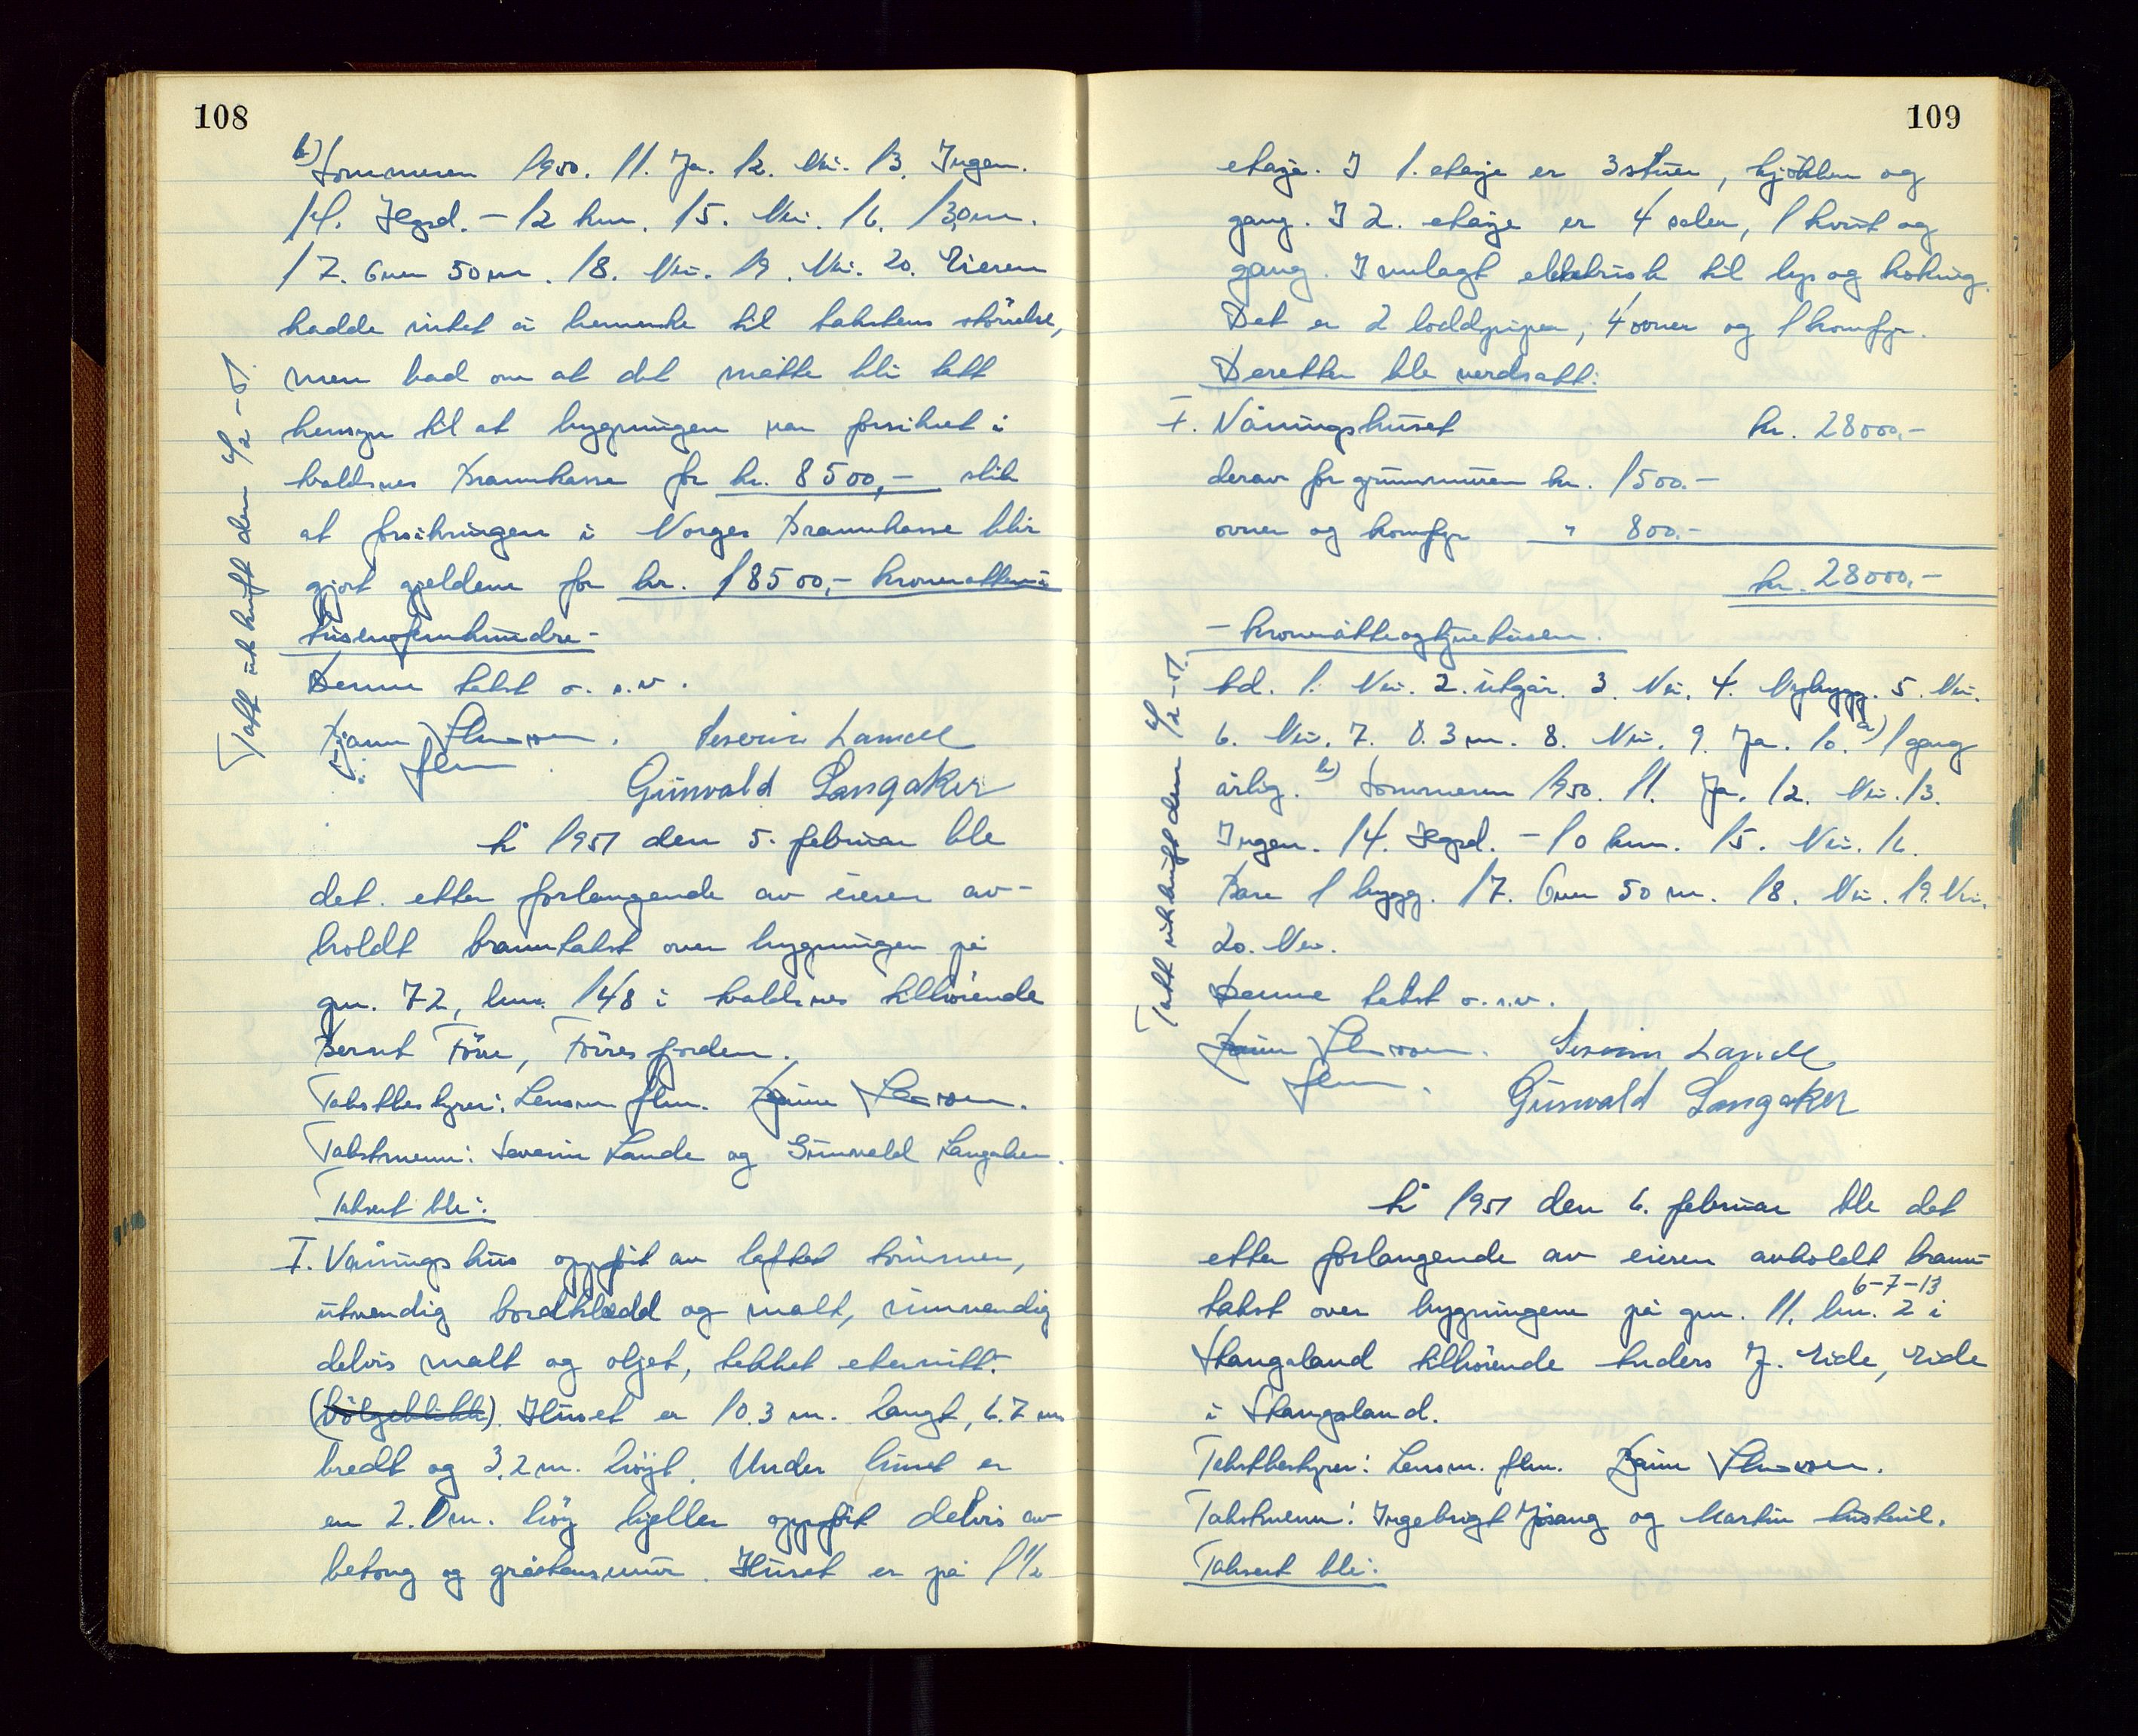 108
b) Sommeren 1950. 11. Ja. 12. Nei. 13. Ingen.
14. Hgsd. - 12 km. 15. Nei. 16. 13,0 m.
17. Over 50 m. 18. Nei. 19. Nei. 20. Eieren
hadde intet å bemerke til takstens störrelse,
men bad om at det måtte bli tatt
hensyn til at bygningen var forsikret i
Avaldsnes Brannkasse for kr. 8500,- slik
at forsikringen i Norges Brannkasse blir
gjort gjeldene for kr. 18500,- kroneratten-
tusenfemhundre-
Denne takst o.s.v.
Severin Lande
flm
Gunvald Langaker
År 1951 den 5. februar ble
det etter forlangende av eieren av-
holdt branntakst over bygningen på
gnr. 72, bnr. 148 i Avaldsnes tilhörende
Bernt Förre, Förresfjorden.
Takstbestyrer: Lensm. flm.
Takstmenn: Severin Lande og Gunvald Langaker.
Taksert ble:
I. Våningshus oppfört av laftet tömmer,
utvendig bordkledd og malt, innvendig
delvis malt og oljet, tekket eternitt.
(bölgeblikk). Huset er 10.3 m. langt, 6.7 m
bredt og 3.2 m. höyt. Under huset er
en 2.0 m. höy kjeller oppfört delvis av
betong og gråstensmur. Huset er på 1 1/2
Tatt utskrift den 5/2-51.
109
etasje. I 1. etasje er 3 stuer, kjökken og
gang. I 2. etasje er 4 saler, 1 kvist og
gang. Innlagt elektrisk til lys og koking.
Det er 2 loddpiper, 4 ovner og 1 komfyr.
Deretter ble verdsatt:
I. Våningshuset kr. 28000,-
derav for grunnmuren kr. 1500.-
ovner og komfyr " 800.-
kr. 28000,-
- kroneråtteogtjuetusen.
Ad. 1. Nei. 2. utgår. 3. Nei. 4. Nybygg. 5. Nei.
6. Nei. 7. 0.3 m. 8. Nei. 9. Ja. 10. a) 1 gang
årlig. b) Sommeren 1950. 11. Ja. 12. Nei. 13.
Ingen. 14. Hgsd. - 10 km. 15. Nei. 16.
Bare 1 bygg. 17. Over 50 m. 18. Nei. 19. Nei.
20. Nei.
Denne takst o.s.v.
Severin Lande
flm.
Gunvald Langaker
Tatt utskrift den 5/2-51.
År 1951 den 6. februar ble det
etter forlangende av eieren avholdt brann-
takst over bygningene på gnr. 11. bnr. 2 6-7-13 i
Stangaland tilhörende Anders J. Eide, Eide
i Stangaland.
Takstbestyrer: Lensm. flm.
Takstmenn: Ingebrigt Jösang og Martin Austvik.
Taksert ble: